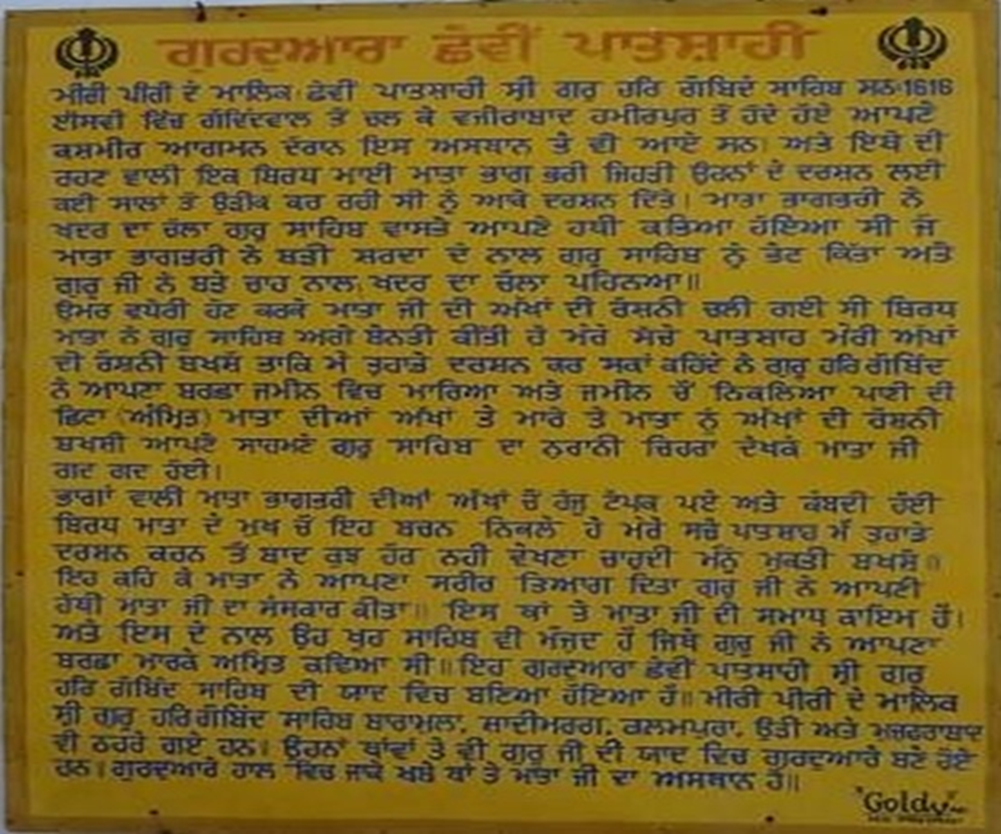 ਗੁਰਦੁਆਰਾ ਛੇਵੀਂ ਪਾਤਸ਼ਾਹੀ
ਮੀਰੀ ਪੀਰੀ ਦੇ ਮਾਲਿਕ ਛੇਵੀਂ ਪਾਤਸ਼ਾਹੀ ਸ੍ਰੀ ਗੁਰੂ ਹਰਿ ਗੋਬਿੰਦ ਸਾਹਿਬ ਸਨ 1616
ਈਸਵੀ ਵਿੱਚ ਗੋਵਿੰਦਵਾਲ ਤੋਂ ਚਲ ਕੇ ਵਜੀਰਾਬਾਦ ਹਮੀਰਪੁਰ ਤੋਂ ਹੁੰਦੇ ਹੋਏ ਆਪਣੇ
ਕਸ਼ਮੀਰ ਆਗਮਨ ਦੌਰਾਨ ਇਸ ਅਸਥਾਨ ਤੇ ਵੀ ਆਏ ਸਨ। ਅਤੇ ਇਥੋਂ ਦੀ
ਰਹਣ ਵਾਲੀ ਇਕ ਬਿਰਧ ਮਾਈ ਮਾਤਾ ਭਾਗ ਭਰੀ ਜਿਹੜੀ ਉਹਨਾਂ ਦੇ ਦਰਸ਼ਨ ਲਈ
ਕਈ ਸਾਲਾਂ ਤੋਂ ਉਡੀਕ ਕਰ ਰਹੀ ਸੀ ਨੂੰ ਆਕੇ ਦਰਸ਼ਨ ਦਿੱਤੇ। ਮਾਤਾ ਭਾਗਭਰੀ ਨੇ
ਖਦਰ ਦਾ ਚੋਲਾ ਗੁਰੂ ਸਾਹਿਬ ਵਾਸਤੇ ਆਪਣੇ ਹਥੀ ਕਤਿਆ ਹੋਇਆ ਸੀ ਜੋ
ਮਾਤਾ ਭਾਗਭਰੀ ਨੇ ਬੜੀ ਸ਼ਰਦਾ ਦੇ ਨਾਲ ਗੁਰੂ ਸਾਹਿਬ ਨੂੰ ਭੇਟ ਕਿੱਤਾ ਅਤੇ
ਗੁਰੂ ਜੀ ਨੇ ਬੜੇ ਚਾਹ ਨਾਲ ਖਦਰ ਦਾ ਚੋਲਾ ਪਹਿਨਆ॥
ਉਮਰ ਵਧੇਰੀ ਹੋਣ ਕਰਕੇ ਮਾਤਾ ਜੀ ਦੀ ਅੱਖਾਂ ਦੀ ਰੋਸ਼ਨੀ ਚਲੀ ਗਈ ਸੀ ਬਿਰਧ
ਮਾਤਾ ਨੇ ਗੁਰੂ ਸਾਹਿਬ ਅਗੇ ਬੇਨਤੀ ਕੀਤੀ ਹੇ ਮੇਰੇ ਸੱਚੇ ਪਾਤਸ਼ਾਹ ਮੇਰੀ ਅੱਖਾਂ
ਦੀ ਰੋਸ਼ਨੀ ਬਖਸ਼ੋ ਤਾਕਿ ਮੈਂ ਤੁਹਾਡੇ ਦਰਸ਼ਨ ਕਰ ਸਕਾਂ ਕਹਿੰਦੇ ਨੇ ਗੁਰੂ ਹਰਿ ਗੋਬਿੰਦ
ਨੇ ਆਪਣਾ ਬਰਛਾ ਜਮੀਨ ਵਿਚ ਮਾਰਿਆ ਅਤੇ ਜਮੀਨ ਚੋਂ ਨਿਕਲਿਆ ਪਾਣੀ ਦੀ
ਛਿਟਾ (ਅੰਮ੍ਰਿਤ) ਮਾਤਾ ਦੀਆਂ ਅੱਖਾਂ ਤੇ ਮਾਰੇ ਤੇ ਮਾਤਾ ਨੂੰ ਅੱਖਾਂ ਦੀ ਰੋਸ਼ਨੀ
ਬਖਸ਼ੀ ਆਪਣੇ ਸਾਹਮਣੇ ਗੁਰੂ ਸਾਹਿਬ ਦਾ ਨੂਰਾਨੀ ਚਿਹਰਾ ਦੇਖਕੇ ਮਾਤਾ ਜੀ
ਗਦ ਗਦ ਹੋਈ।
ਭਾਗਾਂ ਵਾਲੀ ਮਾਤਾ ਭਾਗਭਰੀ ਦੀਆਂ ਅੱਖਾਂ ਚੋਂ ਹੰਜੂ ਟੱਪਕ ਪਏ ਅਤੇ ਕੰਬਦੀ ਹੋਈ
ਬਿਰਧ ਮਾਤਾ ਦੇ ਮੁਖ ਚੋਂ ਇਹ ਬਚਨ ਨਿਕਲੇ ਹੇ ਮੇਰੇ ਸਚੇ ਪਾਤਸ਼ਾਹ ਮੈਂ ਤੁਹਾਡੇ
ਦਰਸ਼ਨ ਕਰਨ ਤੋਂ ਬਾਦ ਕੁਝ ਹੋਰ ਨਹੀ ਦੇਖਣਾ ਚਾਹੁਦੀ ਮੈਨੂੰ ਮੁਕਤੀ ਬਖਸ਼ੋ॥
ਇਹ ਕਹਿ ਕੇ ਮਾਤਾ ਨੇ ਆਪਣਾ ਸਰੀਰ ਤਿਆਗ ਦਿਤਾ ਗੁਰੂ ਜੀ ਨੇ ਆਪਣੀ
ਹੱਥੀ ਮਾਤਾ ਜੀ ਦਾ ਸੰਸਕਾਰ ਕੀਤਾ॥ ਇਸ ਥਾਂ ਤੇ ਮਾਤਾ ਜੀ ਦੀ ਸਮਾਧ ਕਾਇਮ ਹੈ।
ਅਤੇ ਇਸ ਦੇ ਨਾਲ ਉਹ ਖੂਹ ਸਾਹਿਬ ਵੀ ਮੌਜੂਦ ਹੈ ਜਿਥੇ ਗੁਰੂ ਜੀ ਨੇ ਆਪਣਾ
ਬਰਛਾ ਮਾਰਕੇ ਅਮ੍ਰਿਤ ਕਢਿਆ ਸੀ॥ ਇਹ ਗੁਰਦੁਆਰਾ ਛੇਵੀਂ ਪਾਤਸ਼ਾਹੀ ਸ੍ਰੀ ਗੁਰੂ
ਹਰਿ ਗੋਬਿੰਦ ਸਾਹਿਬ ਦੀ ਯਾਦ ਵਿਚ ਬਣਿਆ ਹੋਇਆ ਹੈ॥ ਮੀਰੀ ਪੀਰੀ ਦੇ ਮਾਲਿਕ
ਸ੍ਰੀ ਗੁਰੂ ਹਰਿ ਗੋਬਿੰਦ ਸਾਹਿਬ ਬਾਰਾਮੂਲਾ, ਸ਼ਾਦੀਮਰਗ, ਕਲਮਪੁਰਾ, ਉੜੀ ਅਤੇ ਮੁਜ਼ਫਰਾਬਾਦ
ਵੀ ਠਹਰੇ ਗਏ ਹਨ। ਉਹਨਾਂ ਥਾਂਵਾਂ ਤੇ ਵੀ ਗੁਰੂ ਜੀ ਦੀ ਯਾਦ ਵਿਚ ਗੁਰਦੁਆਰੇ ਬਣੇ ਹੋਏ
ਹਨ। ਗੁਰਦੁਆਰੇ ਹਾਲ ਵਿਚ ਜਾਕੇ ਖਬੇ ਥਾਂ ਤੇ ਮਾਤਾ ਜੀ ਦਾ ਅਸਥਾਨ ਹੈ॥
Goldy